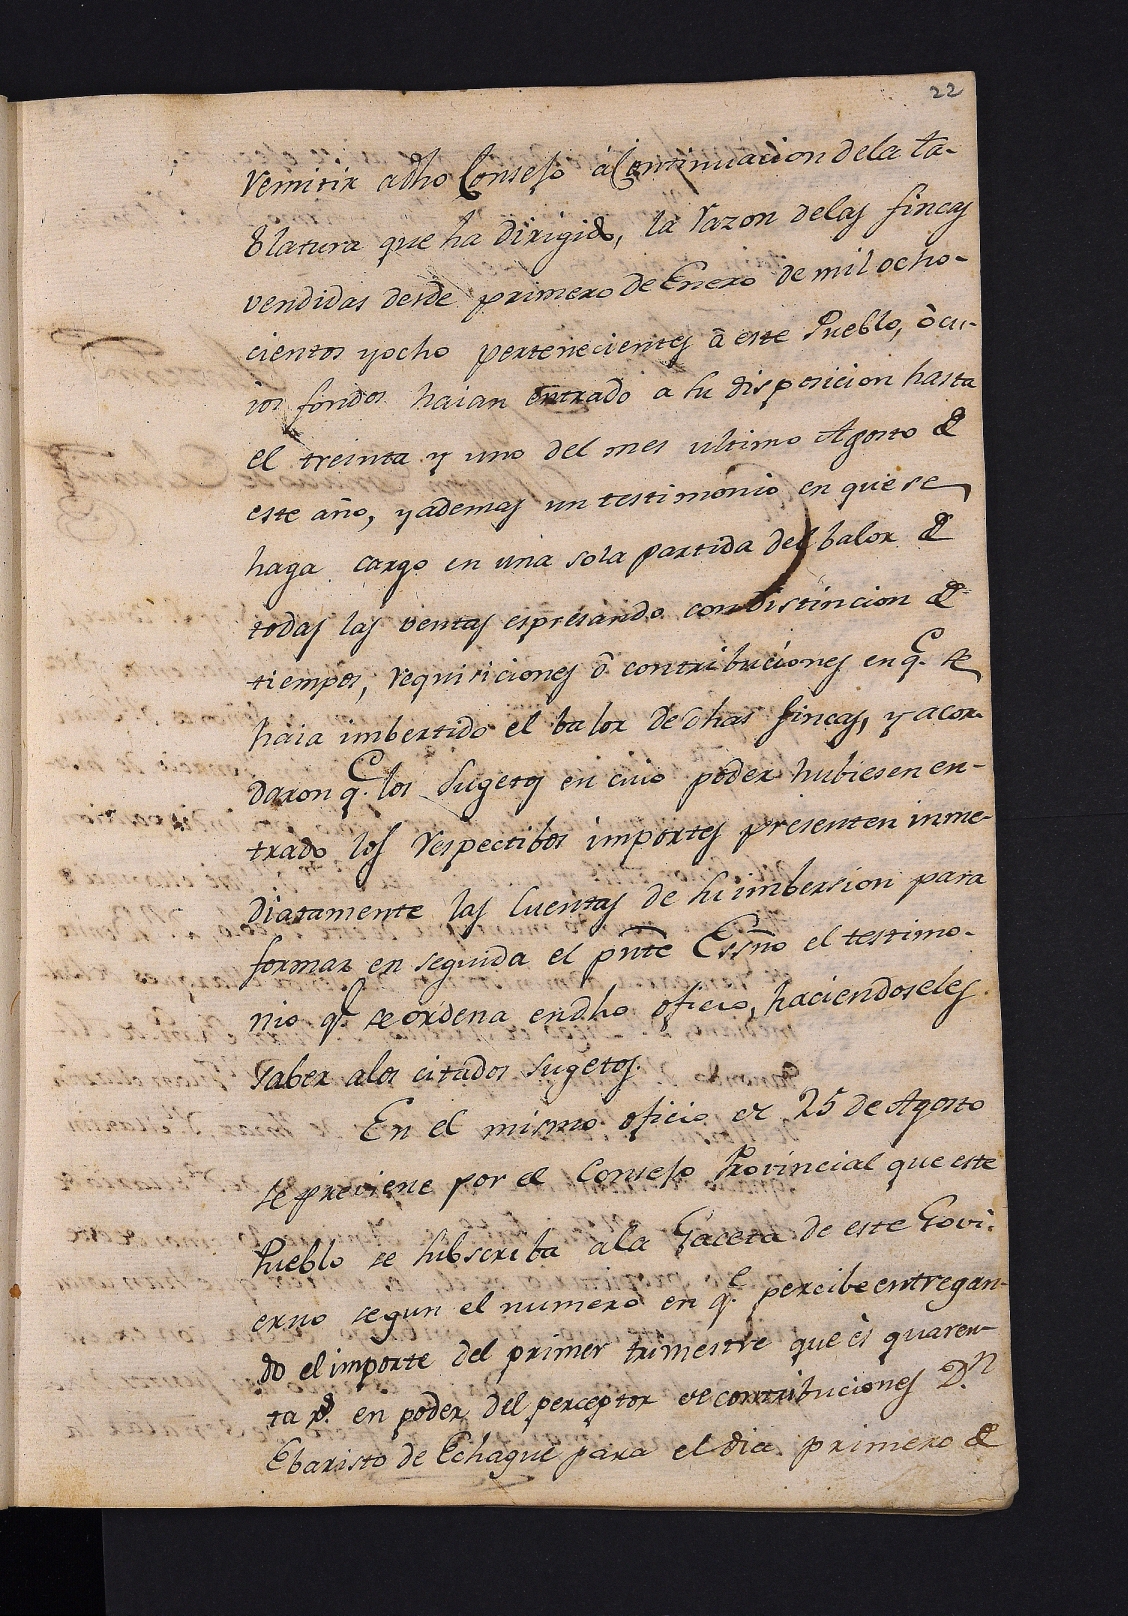 22
remitir adho Consejo á Continuacion dela ta-
blatura que ha dirigido, la razon delas fincas
vendidas desde primero de Enero de mil ocho-
cientos yocho pertenecientes â este Pueblo, ô cu-
ios fondos haian entrado a su disposicion hasta
el treinta y uno del mes ultimo Agosto de
este año, yademas un testimonio en que se
haga cargo en una sola partida del balor de
todas las ventas espresando con distincion de
tiempos, requisiciones ô contribuciones en q.e se
haia imbertido el balor de dhas fincas, y acor-
daron q.e los Sugetos en cuio poder hubiesen en-
trado los respectibos importes presenten inme-
diatamente las Cuentas de su imbersion para
formar en seguida el pñte Essño el testimo-
nio q.e se ordena endho oficio, haciendoseles
saber alos citados sugetos.
En el mismo oficio de 25 de Agosto
se previene por el Consejo Provincial que este
Pueblo se subscriba ala Gaceta de este Govi-
erno segun el numero en q.e percibe entregan-
do el importe del primer trimestre que es quaren-
ta r.s en poder del perceptor de contribuciones D.n
Ebaristo de Echague para el dia primero de